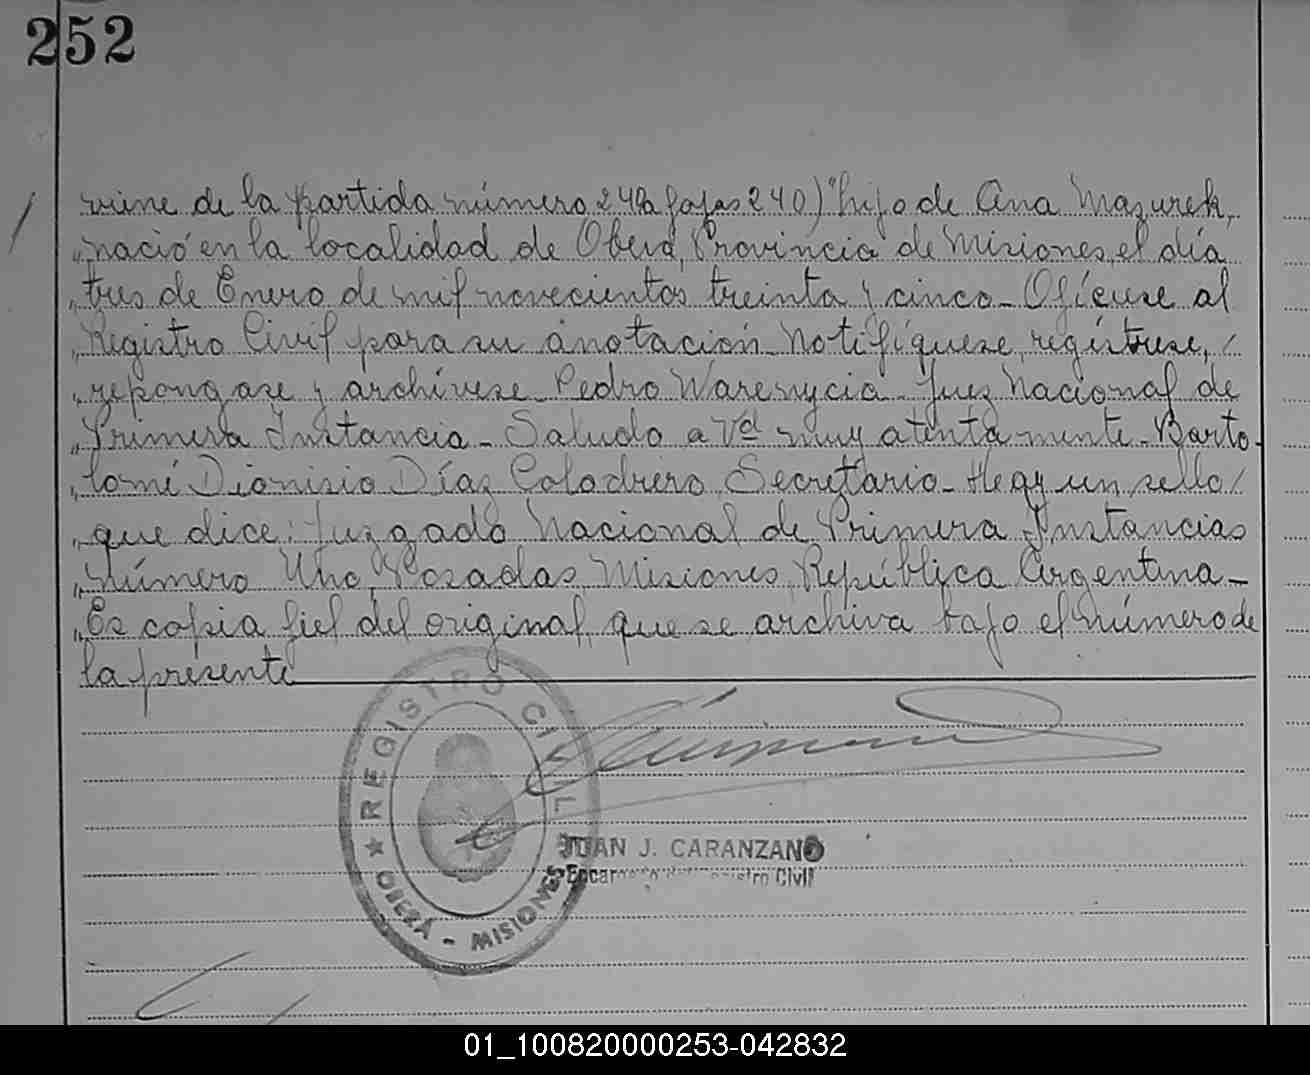 252
viene de la partida número 242 a fojas 240) "hijo de Ana Mazurek,
"nació en la localidad de Oberá, Provincia de Misiones, el día
"tres de Enero de mil novecientos treinta y cinco_ Ofíciese al
"Registro Civil para su anotación_ Notifíquese, regístrese, /
"repóngase y archívese_ Pedro Warenycia_ Juez Nacional de
"Primera Instancia_ Saludo a Vd muy atentamente_ Barto-
"lomé Dionisio Díaz Colodrero, Secretario_ Hay un sello /
"que dice: Juzgado Nacional de Primera Instancias
"Número Uno, Posadas Misiones, República Argentina_
"Es copia fiel del original, que se archiva bajo el número de
la presente
REGISTRO CIVIL
★ OBERÁ - MISIONES
JUAN J. CARANZANO
Encargado del Registro Civil
01_100820000253-042832